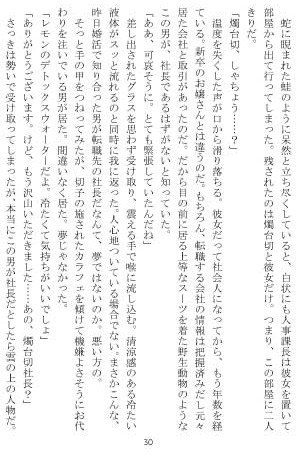 蛇に睨まれた蛙のように呆然と立ち尽くしていると、白状にも人事課長は彼女を置いて
部屋から出て行ってしまった。残されたのは燭台切と彼女だけ。つまり、この部屋に二人
きりだ。
「燭台切、しゃちょう……？」
温度を失くした声が口から滑り落ちる。彼女だって社会人になってから、もう年数を経
ている。新卒のお嬢さんとは違うのだ。もちろん、転職する会社の情報は把握済みだし元々
居た会社と取引があったのだ。だから目の前に居る上等なスーツを着た野生動物のような
この男が、社長であるはずがないと知っていた。
「ああ、可哀そうに。とても緊張していたんだね」
差し出されたグラスを思わず受け取り、震える手で喉に流し込む。清涼感のある冷たい
液体がスッと流れるのと同時に我に返った。人心地ついている場合でない。まさかこんな、
昨日婚活で知り合った男が転職先の社長だなんて、夢ではないのか。悪い方の。
そっと手の甲をつねってみたが、切子の施されたカラフェを傾けて機嫌よさそうにお代
わりを注いでいる男が居た。間違いなく居た。夢じゃなかった。
「レモンのデトックスウォーターだよ。冷たくて気持ちがいいでしょ」
「ありがとうございます。けど、もう沢山いただきました……あの、燭台切社長？」
さっきは勢いで受け取ってしまったが、本当にこの男が社長だとしたら雲の上の人物だ。
30